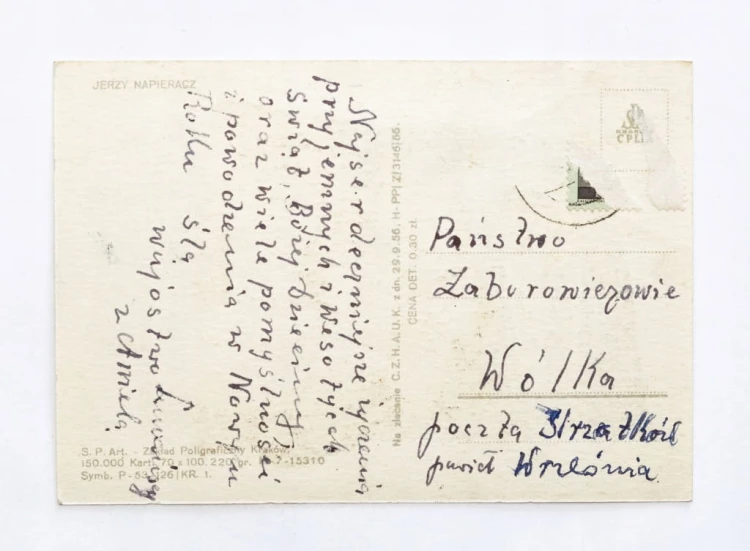 JERZY NAPIERACZ
Najserdeczniejsze życzenia
przyjemnych i wesołych
Świąt, Bożej Dzieciny
oraz wiele pomyślności
i powodzenia w Nowym
Roku ślą
wujostwo
z Anielą
Na zlecenie C.Z.H.A.U.K. z dn. 29.9.56. H-PP|Z|3146|56.
CENA DET. 0.30 zł.
CPLiA
Państwo
Zaborowiczowie
Wólka
poczta Strzałków
powiat Września.
S. P. Art. - Zakład Poligraficzny Kraków,
150.000 Kart. 70 x 100. 220 gr. 7-15310
Symb. P-53 126 | KR. 1.